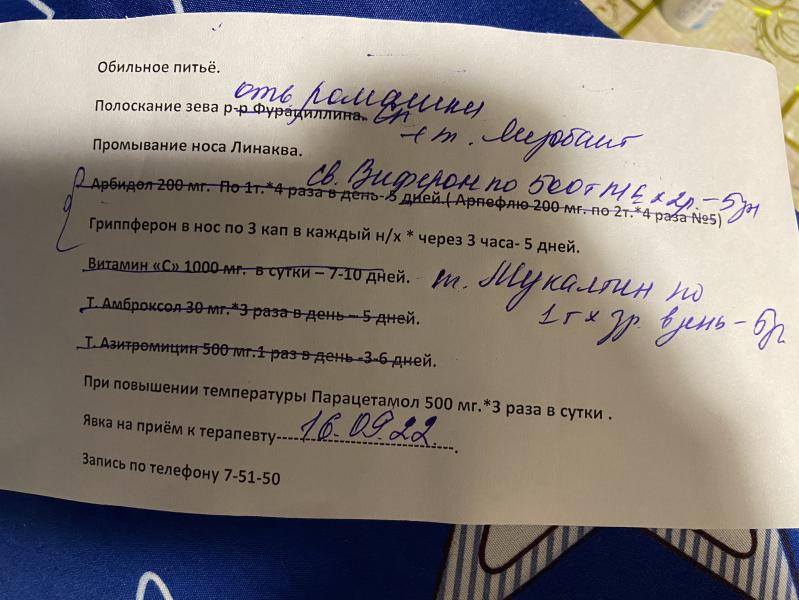 Обильное питьё.
отв. ромашки
Полоскание зева р-р Фурациллина.
+ т.
Промывание носа Линаква.
св. Виферон по 500т МЕ х 2р. – 5дн
Арбидол 200 мг. По 1т.*4 раза в день-5 дней.( Арпефлю 200 мг. по 2т.*4 раза №5)
Гриппферон в нос по 3 кап в каждый н/х * через 3 часа- 5 дней.
Витамин «С» 1000 мг. в сутки – 7-10 дней.
т. Мукалтин по
1т х 3р. в день – 5д
Т. Амброксол 30 мг.*3 раза в день – 5 дней.
Т. Азитромицин 500 мг.1 раз в день -3-6 дней.
При повышении температуры Парацетамол 500 мг.*3 раза в сутки .
Явка на приём к терапевту 16.09.22.
Запись по телефону 7-51-50